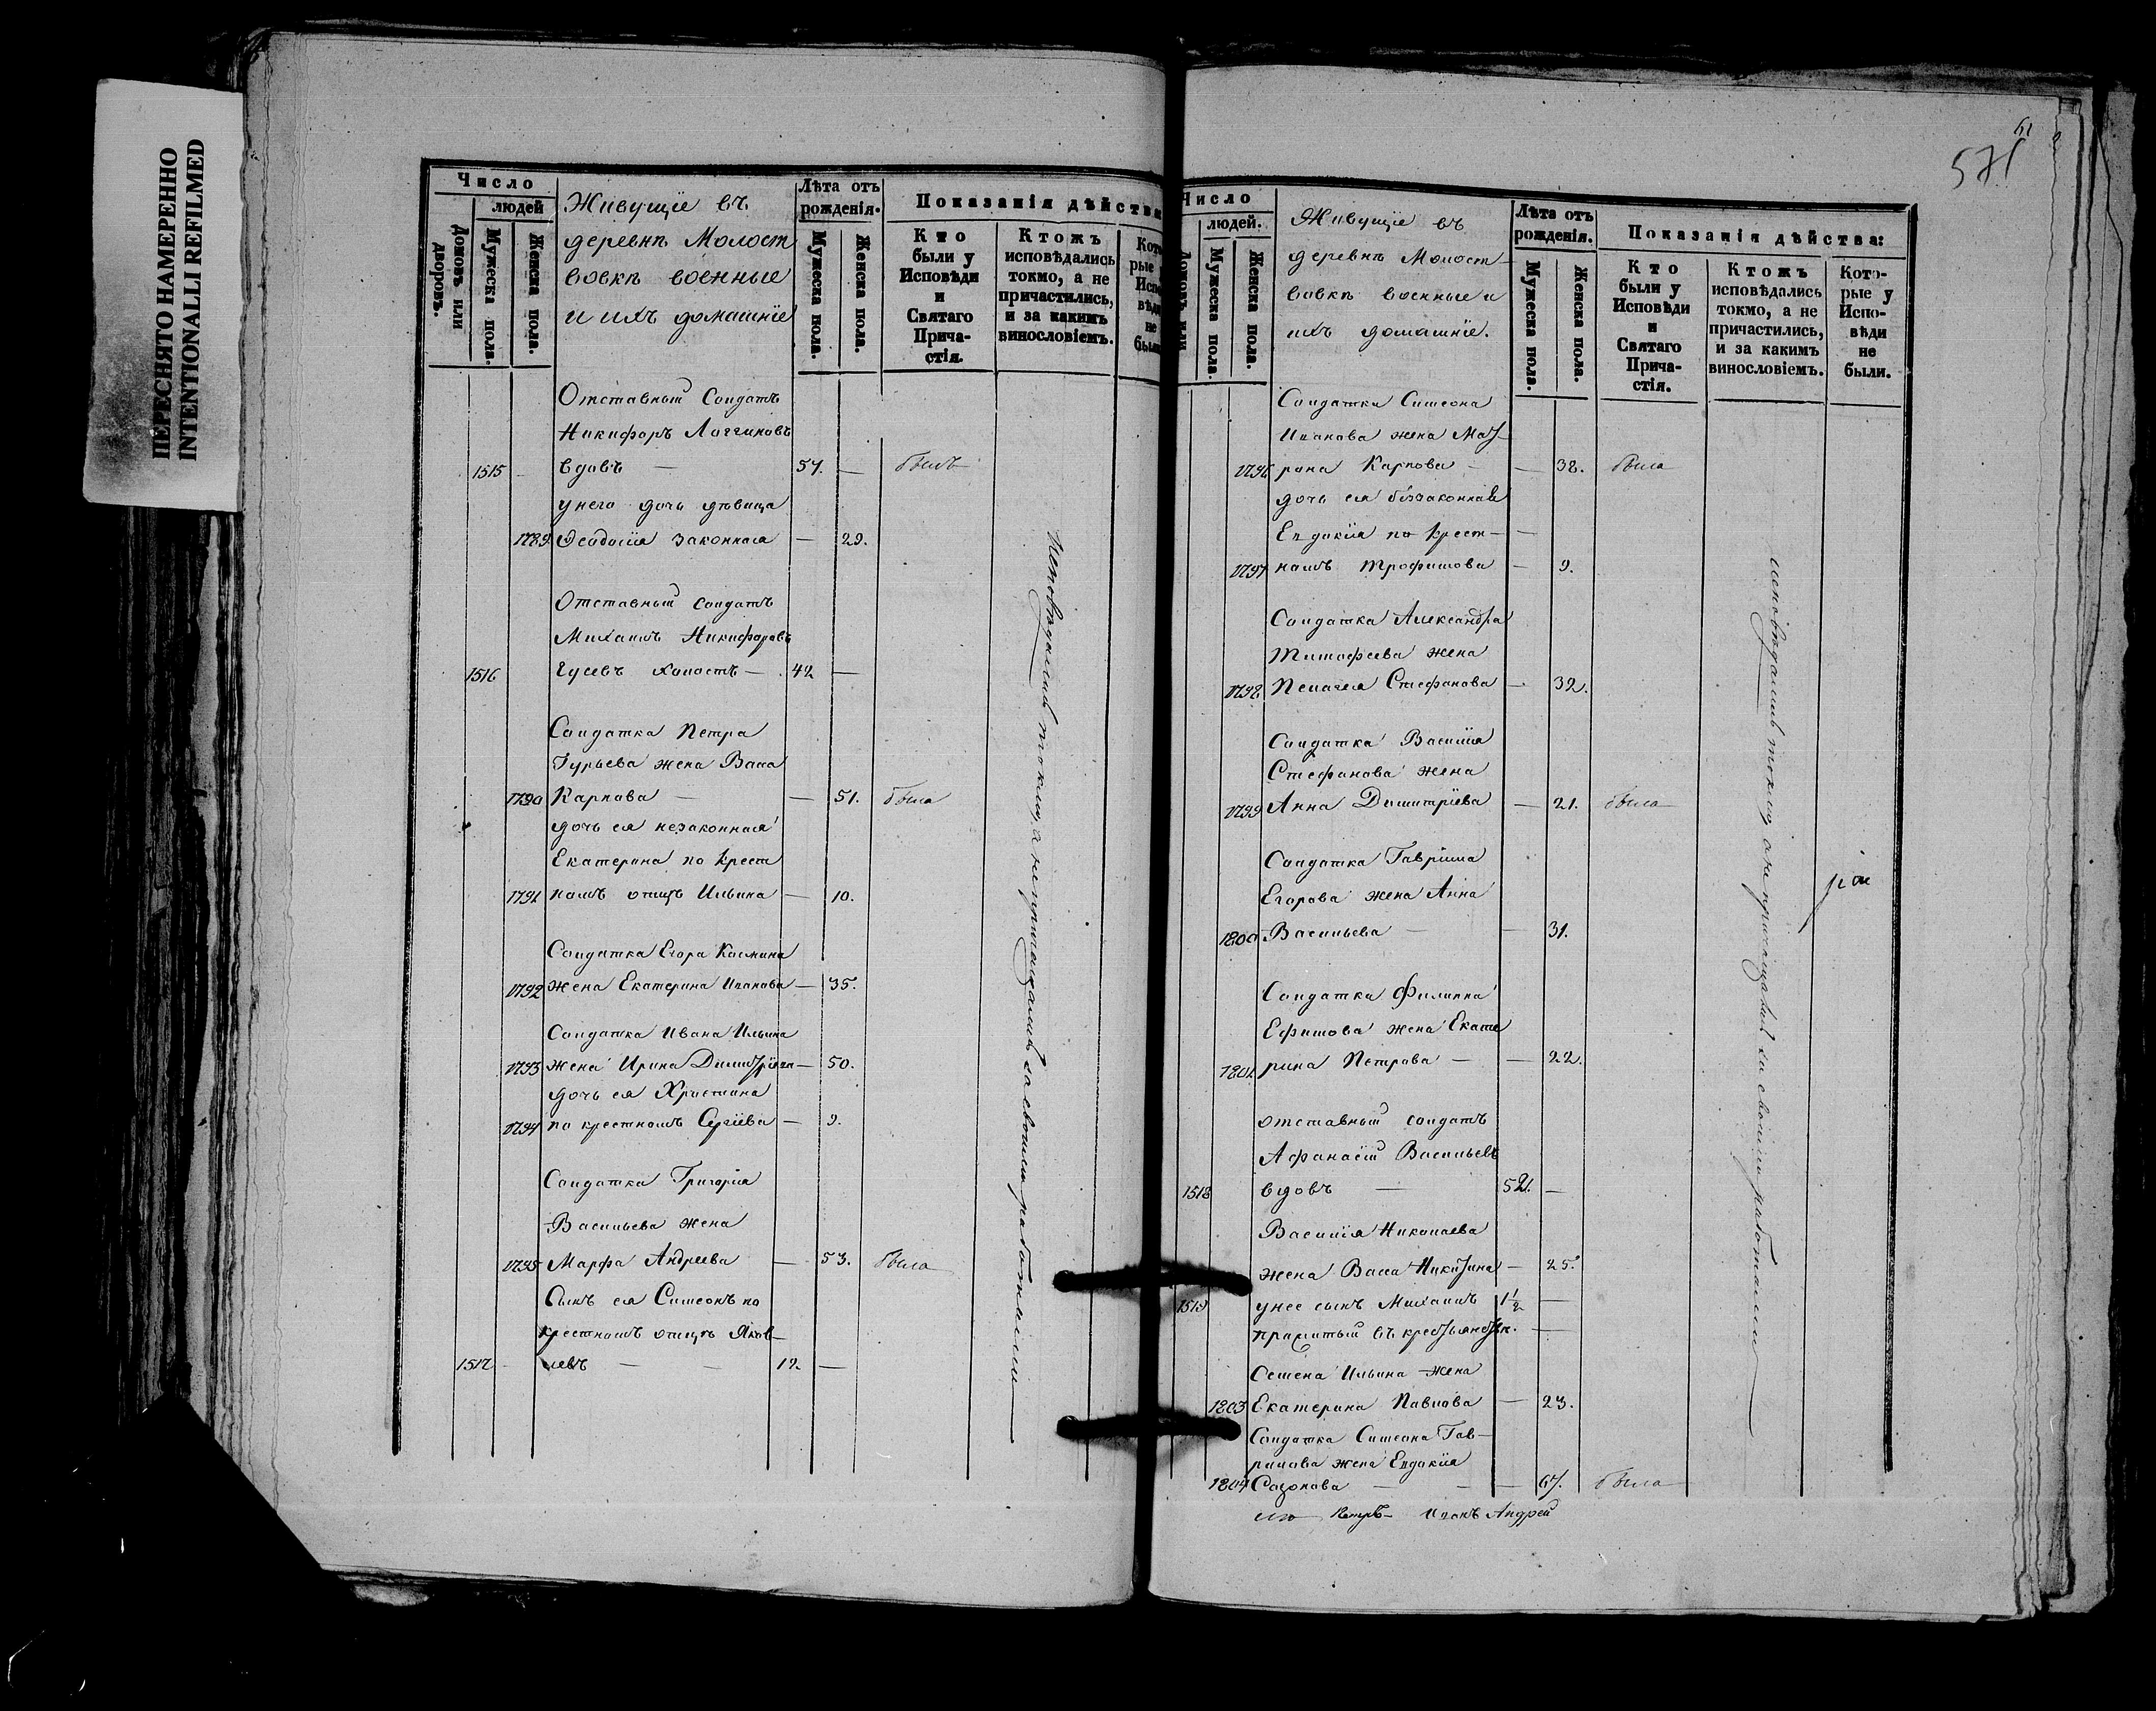 ПЕРЕСНЯТО НАМЕРЕННО
INTENTIONALLI REFILMED
Число
людей
Домовъ или дворовъ.
Мужеска пола.
Женска пола.
Живущіе въ
деревнѣ Молост
вовкѣ военные
и ихъ домашніе
Лѣта отъ
рожденія.
Мужеска пола.
Женска пола.
Показанія дѣйства
Кто
были у
Исповѣди
и
Святаго
Прича-
стія.
Ктожъ
исповѣдались
токмо, а не
причастились,
и за какимъ
винословіемъ.
Отставный Солдатъ
Никифоръ Логгиновъ
1515 вдовъ — 57. — былъ
у него дочь дѣвица
1789. Ѳеодосія законная — 29.
Отставный солдатъ
Михаилъ Никифоровъ
1516 Гусевъ холостъ — 42 —
Солдатка Петра
Гурьева жена Васса
1790 Карпова — — 51. была
дочь ея незаконная
Екатерина по крест
1791 номъ отцѣ Ильина — 10.
Солдатка Егора Космина
1792 жена Екатерина Иванова — 35.
Солдатка Ивана Ильина
1793 жена Ирина Димитріева — 50.
дочь ея Христина
1794 по крестномъ Сергіева — 9.
Солдатка Григорія
Васильева жена
1795 Марфа Андреева — 53. была
Сынъ ея Симеонъ по
крестномъ отцѣ Яков-
1517 левъ — — 12 —
исповѣдались токмо, а не причащались за своими работами
571
Число
людей.
Мужеска пола.
Женска пола.
Живущіе въ
деревнѣ Молост-
вовкѣ военные и
ихъ домашніе.
Лѣта отъ
рожденія.
Мужеска пола.
Женска пола.
Показанія дѣйства:
Кто
были у
Исповѣди
и
Святаго
Прича-
стія.
Ктожъ
исповѣдались
токмо, а не
причастились,
и за какимъ
винословіемъ.
Кото-
рые у
Испо-
вѣди
не
были.
Солдатка Симеона
Иванова жена Мат-
1796 рона Карпова — — 38. была
дочь ея беззаконная
Евдокія по крест- —
1797 номъ Трофимова — 9.
Солдатка Александра
Тимофеева жена
1798 Пелагея Стефанова — 32.
Солдатка Василія
Стефанова жена
1799 Анна Димитріева — 21. была
Солдатка Гавріила
Егорова жена Анна
1800 Васильева — — 31.
Солдатка Филиппа
Ефимова жена Екате
1801 рина Петрова — — 22.
отставный солдатъ
Афанасій Васильевъ
1518 вдовъ — 52. —
Василія Николаева
жена Васса Никитина — 25.
1519 у нее сынъ Михаилъ 1½ —
Семена Ильина жена
1803 Екатерина Павлова — 23.
Солдатка Симеона Гав-
рилова жена Евдокія
1804 Сазонова — — — 67. была
исповѣдались токмо, а не причащались за своими работами
Иванъ Андрей